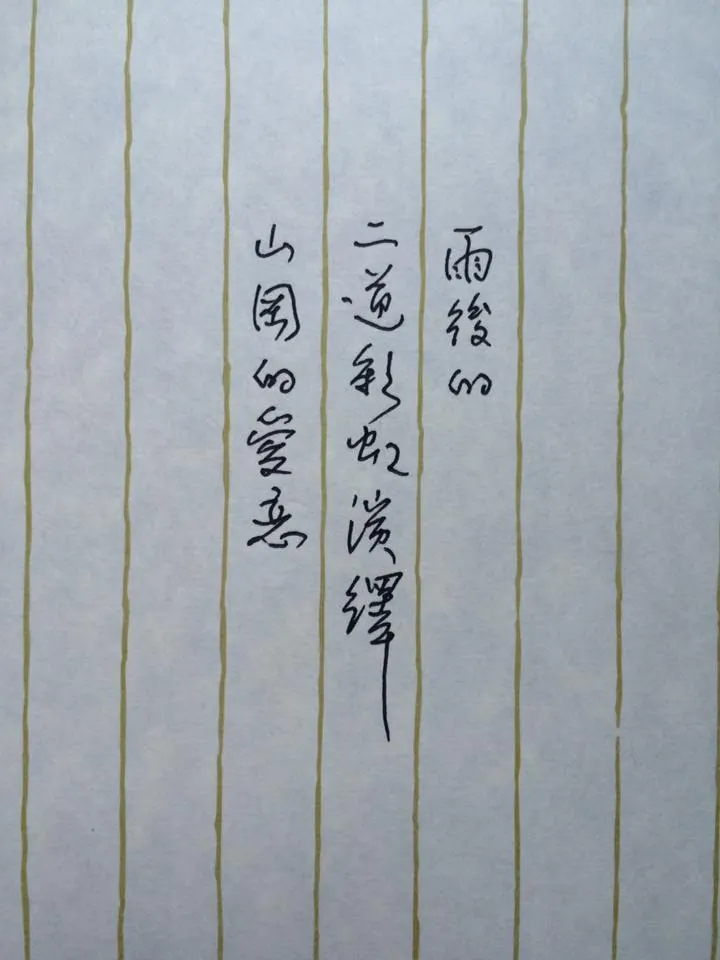 雨後的
二道彩虹演繹
山岡的愛意